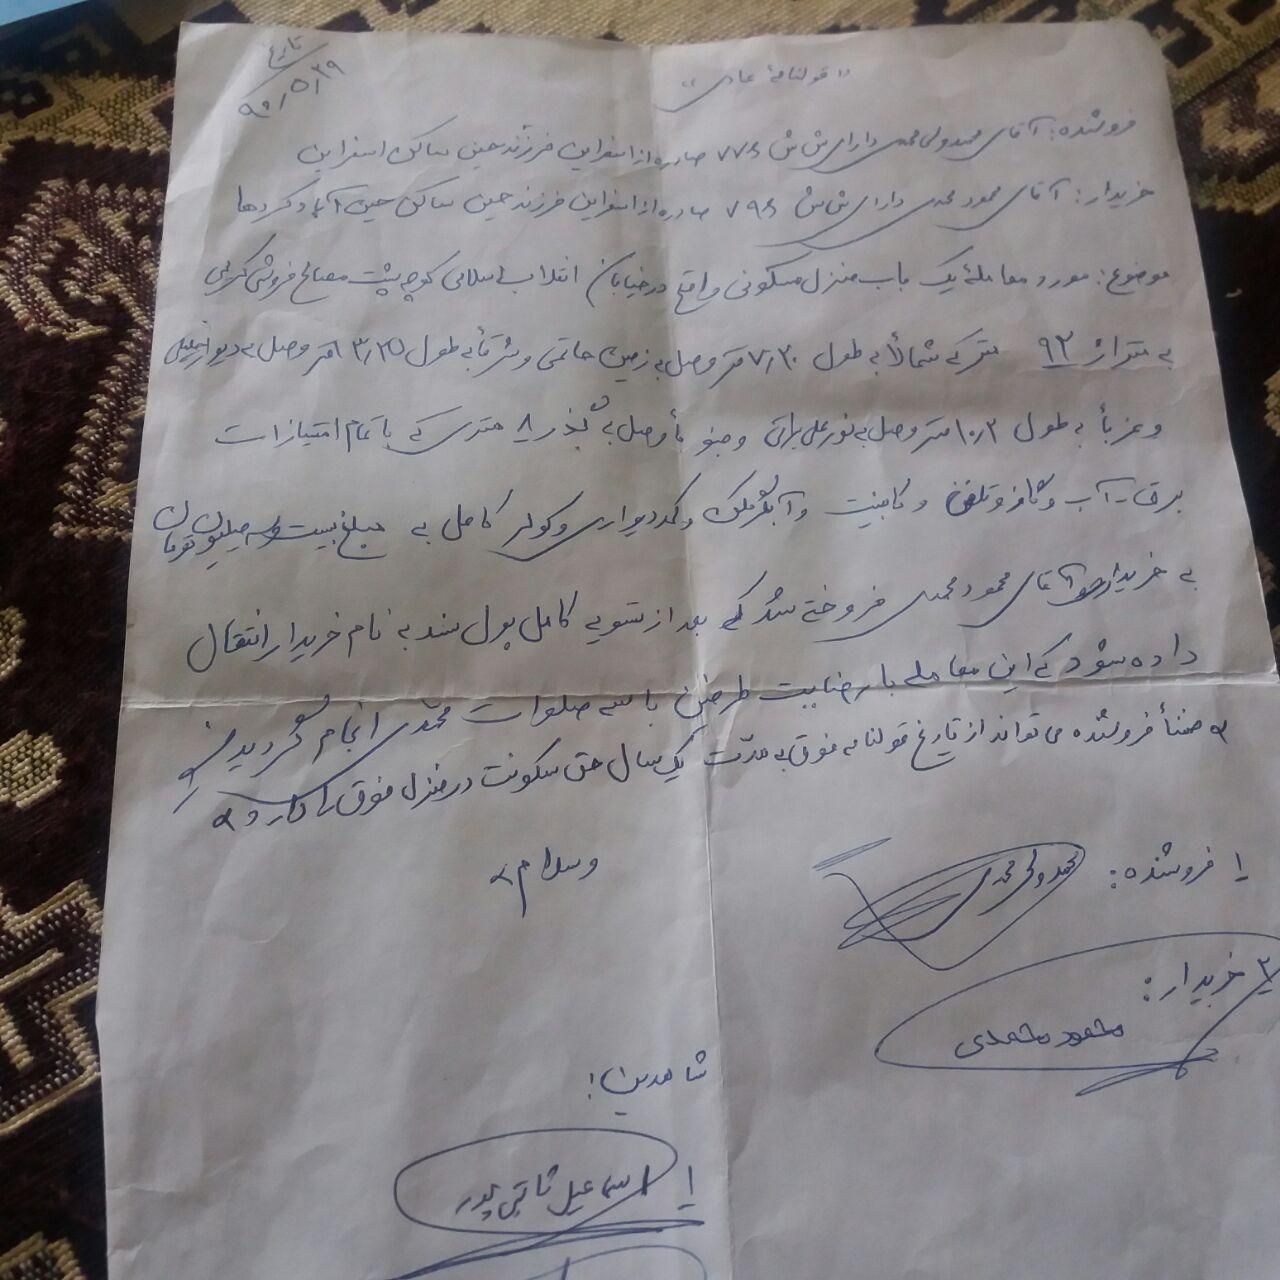 تاریخ
۹۰/۵/۲۹
«قولنامهٔ عادی»
فروشنده: آقای محمدولی محمدی دارای ش ش ۷۷۶ صادره از اسفراین فرزند حسین ساکن اسفراین
خریدار: آقای محمود محمدی دارای ش ش ۷۹۶ صادره از اسفراین فرزند حسین ساکن حسین آباد کردها
موضوع: مورد معاملهٔ یک باب منزل مسکونی واقع در خیابان انقلاب اسلامی کوچه پشت مصالح فروشی کرمی
به متراژ ۹۲ متر که شمالاً به طول ۷/۳۰ متر وصل به زمین حاتمی و شرقاً به طول ۱۳/۲۵ متر وصل به دیوار
و غرباً به طول ۱۰/۲ متر وصل به نورعلی براتی و جنوباً وصل به گذر ۸ متری که با تمام امتیازات
برق - آب و گاز و تلفن و کابینت و آبگرمکن و کمد دیواری و کولر کامل به مبلغ بیست و سه میلیون تومان
به خریدار آقای محمود محمدی فروخته شد که بعد از تسویه کامل پول سند به نام خریدار انتقال
داده شود که این معامله با رضایت طرفین با سه صلوات محمدی انجام گردید.
ضمناً فروشنده می تواند از تاریخ قولنامه فوق به مدّت یک سال حق سکونت در منزل فوق را دارد
وسلام
۱ فروشنده:
محمدولی محمدی
۲ خریدار:
محمود محمدی
شاهدین:
۱ اسماعیل قاتی پور